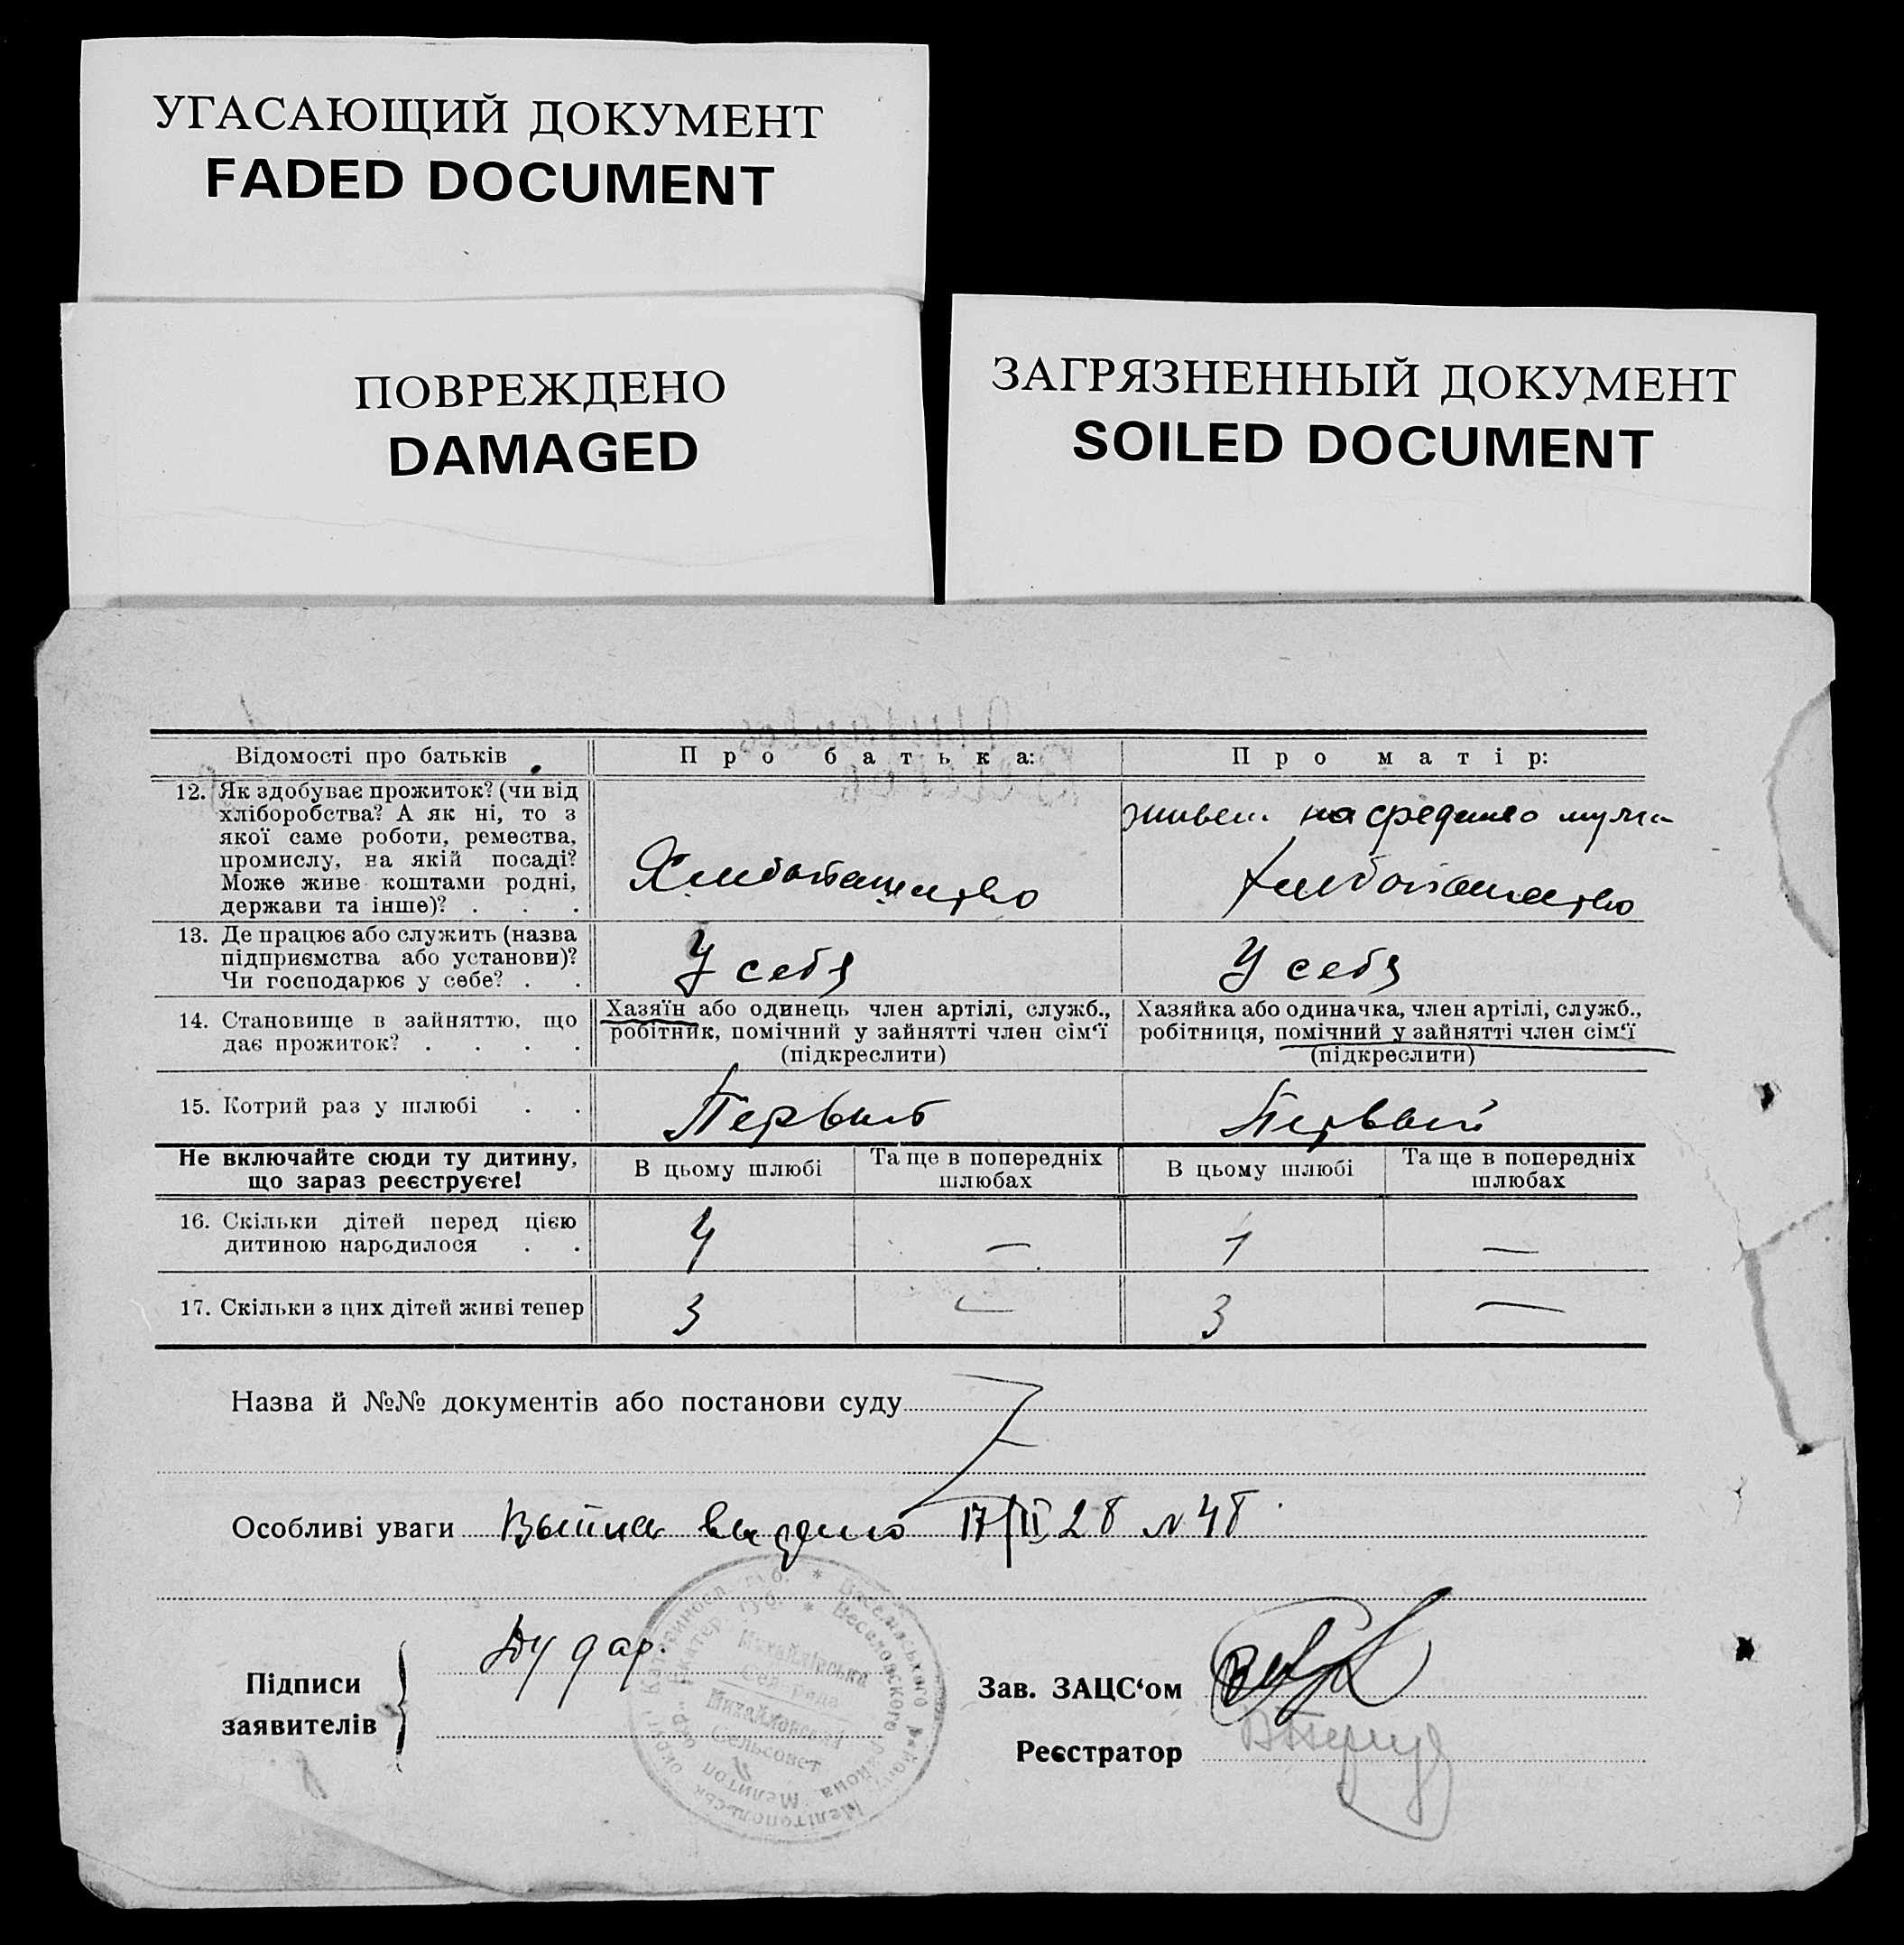 УГАСАЮЩИЙ ДОКУМЕНТ
FADED DOCUMENT
ПОВРЕЖДЕНО
DAMAGED
ЗАГРЯЗНЕННЫЙ ДОКУМЕНТ
SOILED DOCUMENT
Відомості про батьків
Про батька:
Про матір:
12. Як здобуває прожиток? (чи від
хліборобства? А як ні, то з
якої саме роботи, ремества,
промислу, на якій посаді?
Може живе коштами родні,
держави та інше)? . . .
Хлебопашество
живет на средства мужа
хлебопашество
13. Де працює або служить (назва
підприємства або установи)?
Чи господарює у себе? . .
У себя
У себя
14. Становище в зайняттю, що
дає прожиток? . . . .
Хазяїн або одинець член артілі, служб.,
робітник, помічний у зайнятті член сім'ї
(підкреслити)
Хазяйка або одиначка, член артілі, служб.,
робітниця, помічний у зайнятті член сім'ї
(підкреслити)
15. Котрий раз у шлюбі . .
Первый
Первый
Не включайте сюди ту дитину,
що зараз реєструєте!
В цьому шлюбі
Та ще в попередніх
шлюбах
В цьому шлюбі
Та ще в попередніх
шлюбах
16. Скільки дітей перед цією
дитиною народилося . .
4
—
—
17. Скільки з цих дітей живі тепер
3
—
3
—
Назва й №№ документів або постанови суду
Особливі уваги
видано 17/II 28 № 48
Підписи
заявителів
Дудар
Михайлівська
Сельрада
Михайловский
Сельсовет
Веселовского района
Зав. ЗАЦС'ом
Реєстратор